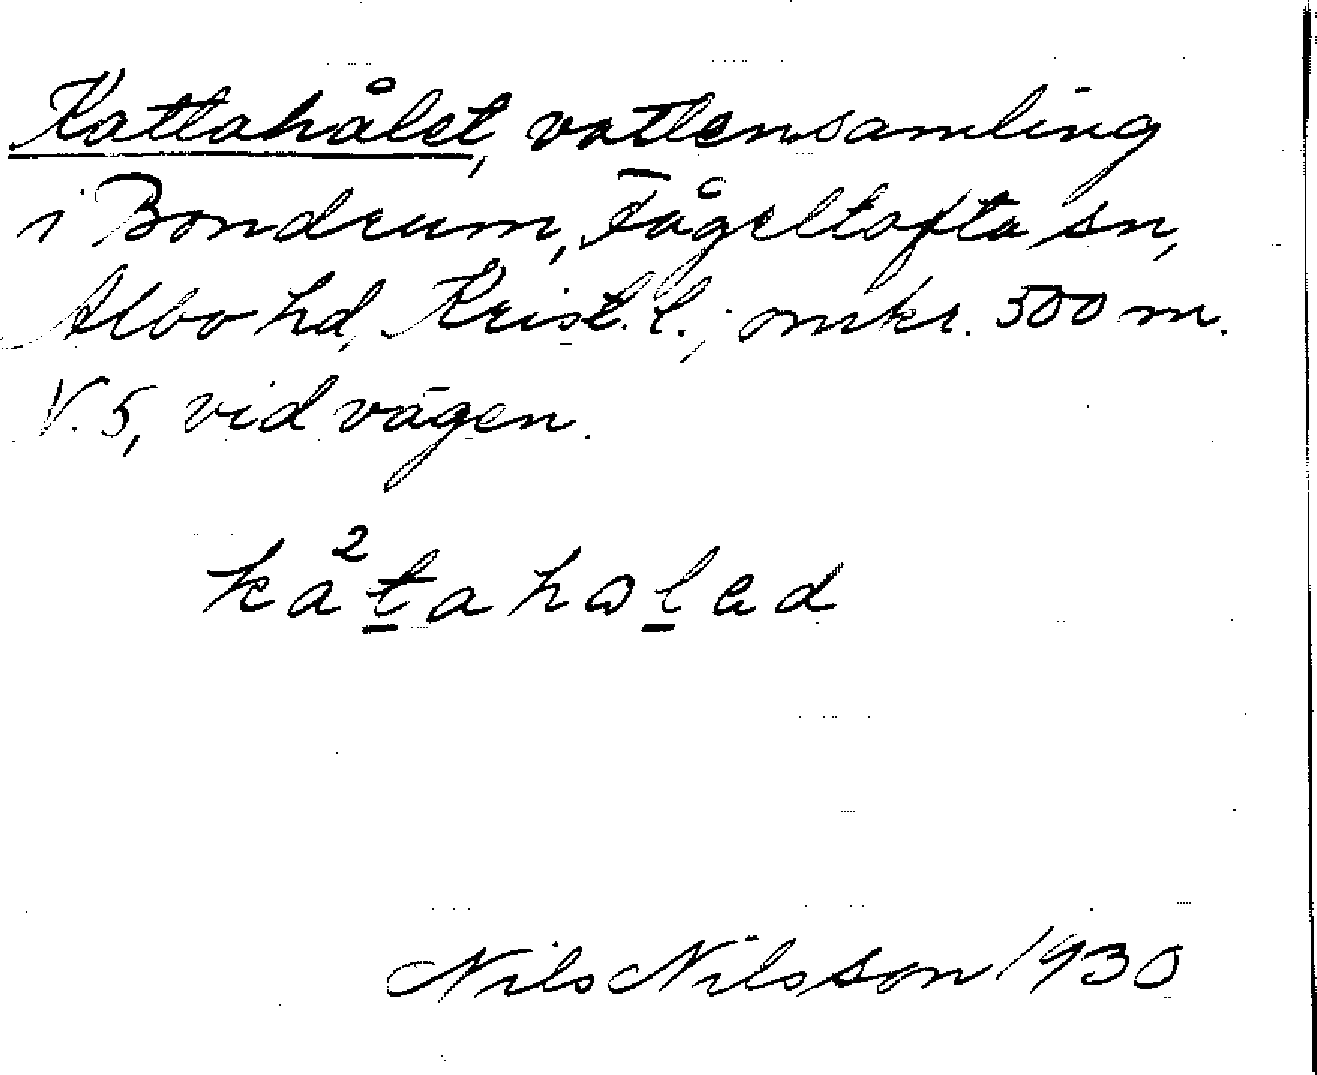 Kattahålet, vattensamling
i Bondrum, Fågeltofta sn,
Albo hd, Krist. l.; omkr. 500 m.
V. 5, vid vägen.
ka²tahɷlad
Nils Nilsson 1930